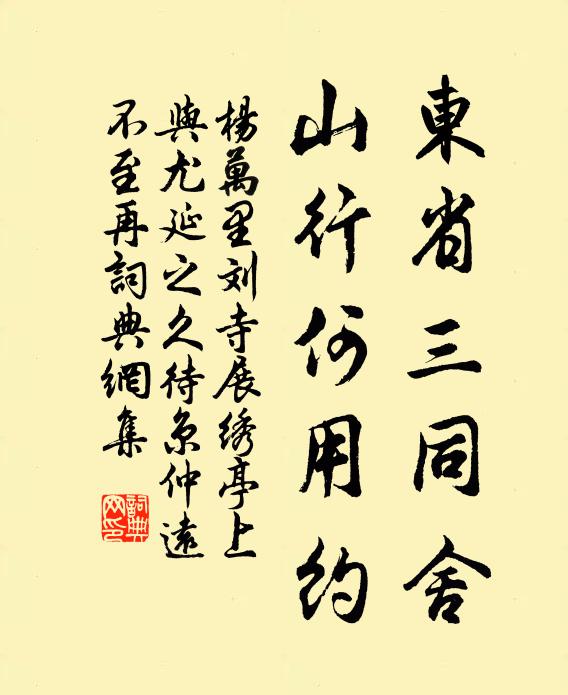 東省三同舍
山行何用約
楊萬里刘寺展綉亭上
與尤延之久待京仲遠
不至再詞典網集
詞典
网印